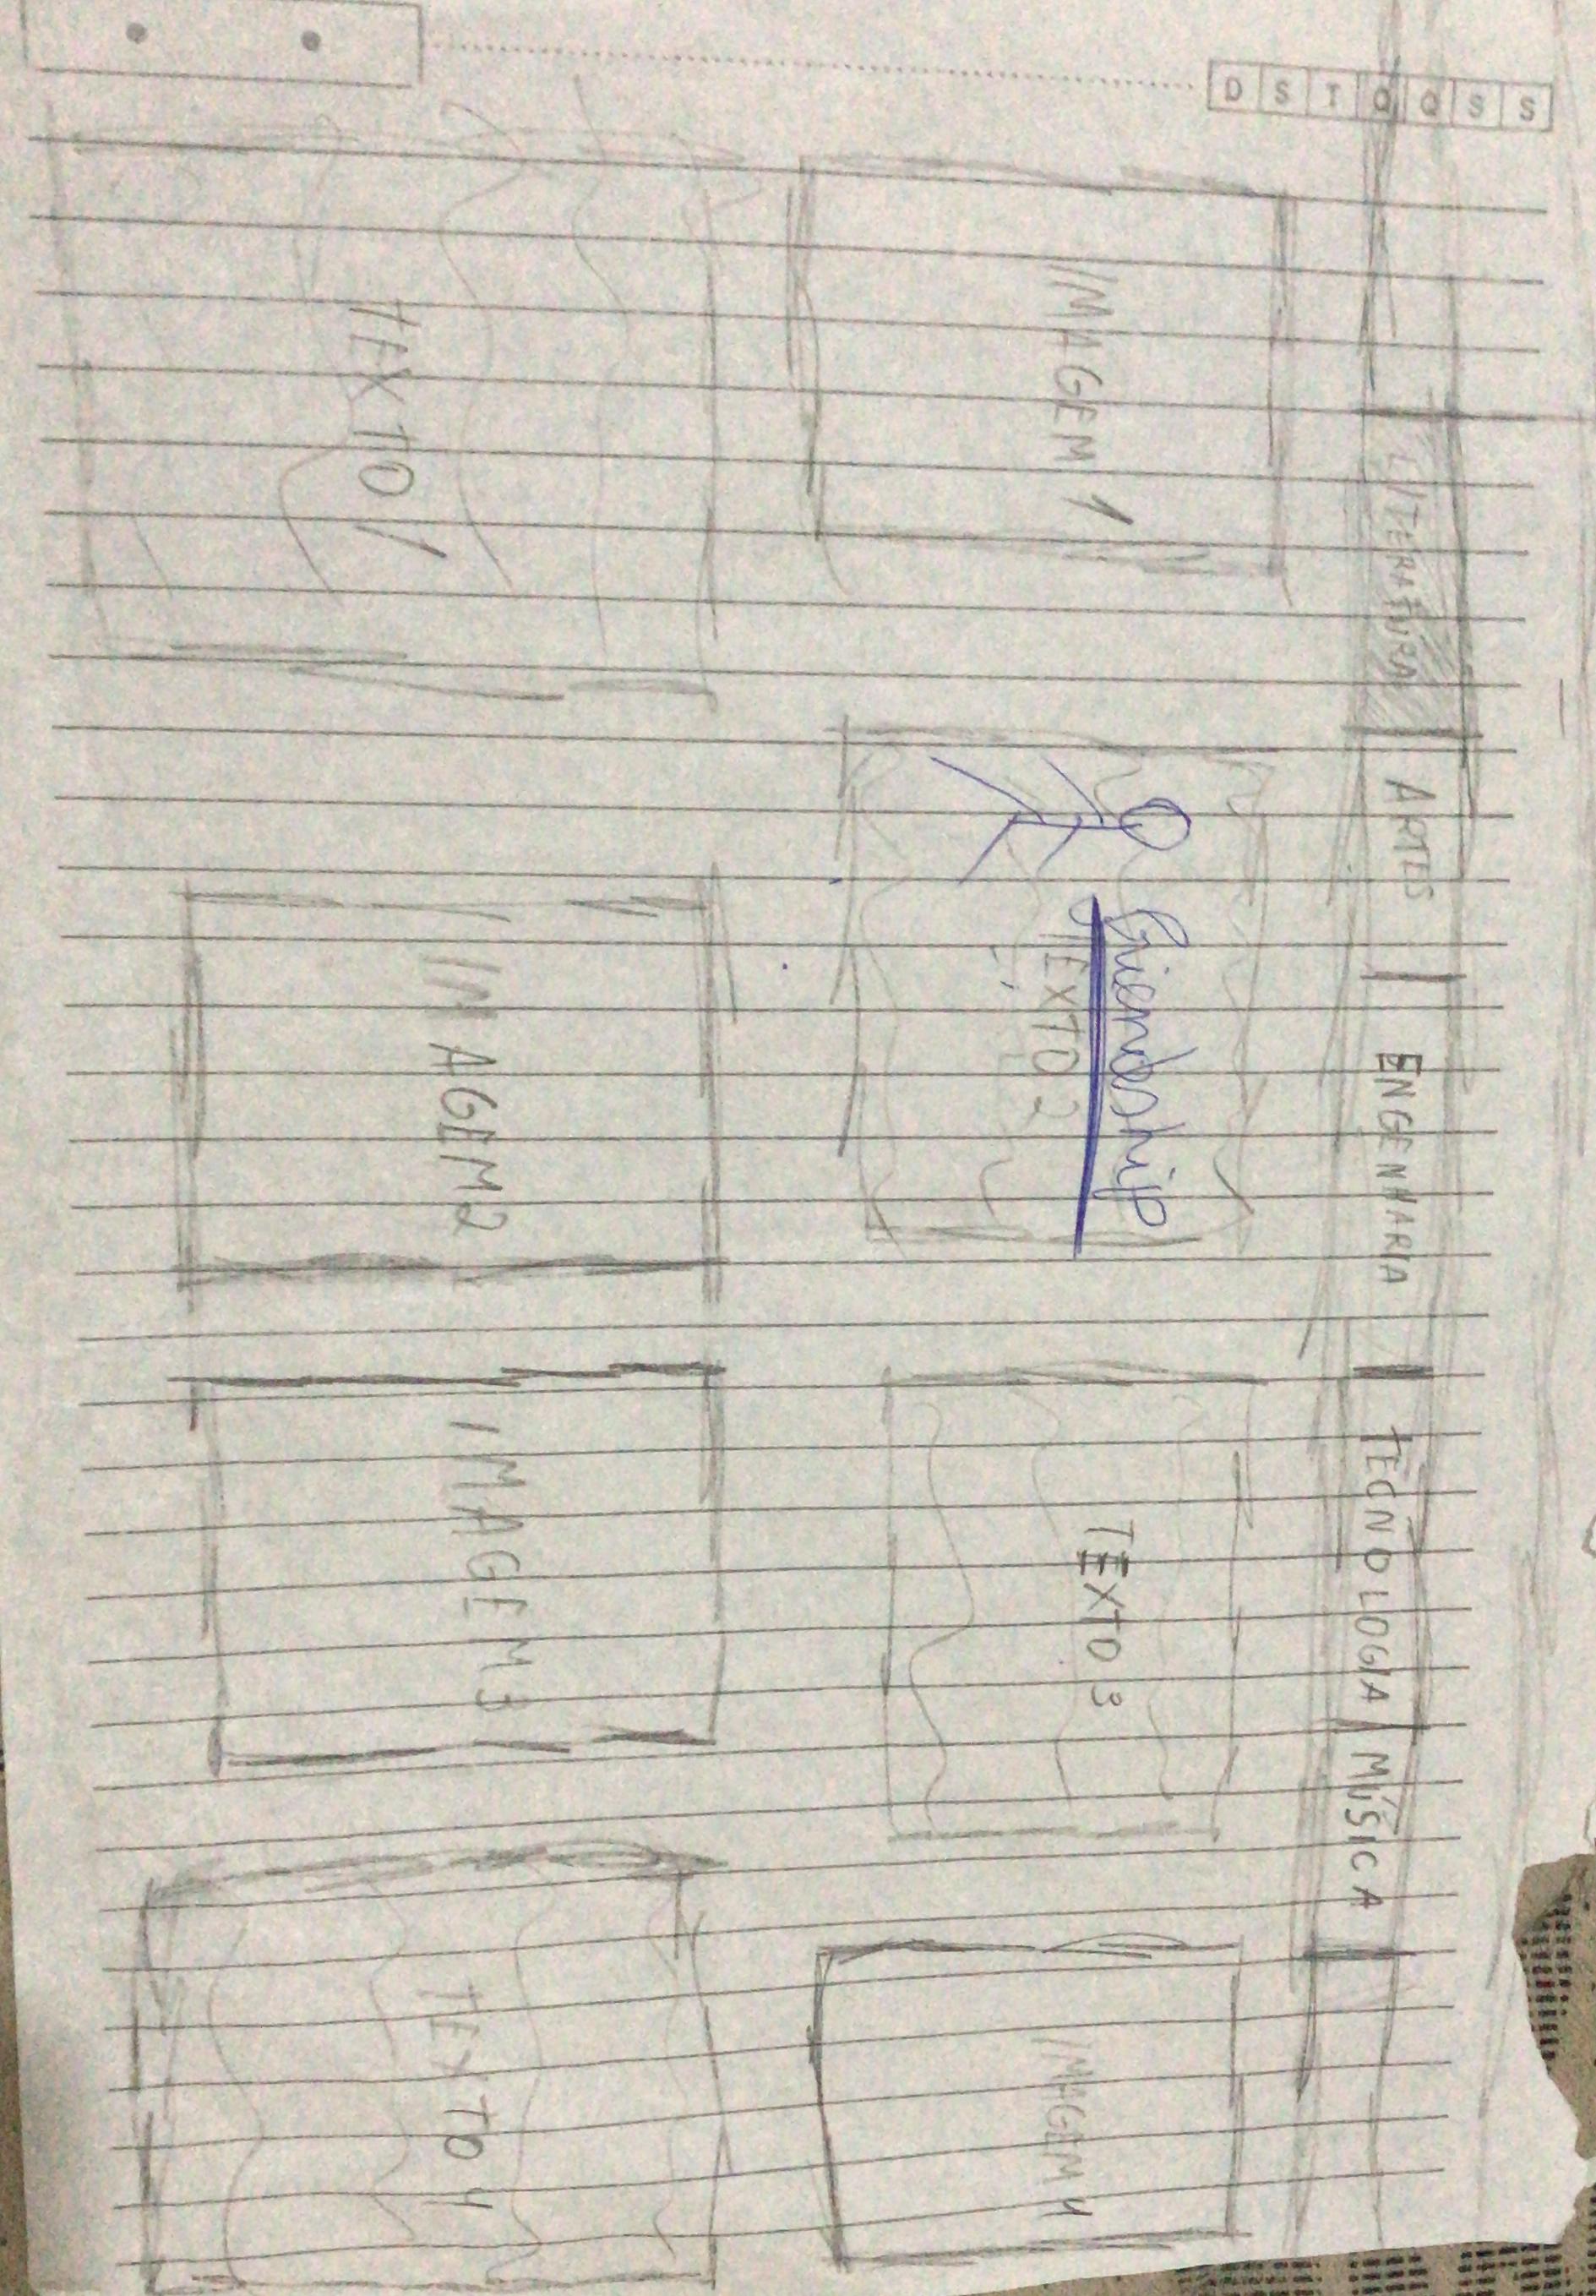 D S T Q Q S S
LITERATURA ARTES ENGENHARIA TECNOLOGIA MÚSICA
IMAGEM 1
Friendship
TEXTO 2
TEXTO 3
IMAGEM 4
TEXTO 1
IMAGEM 2
IMAGEM 3
TEXTO 4